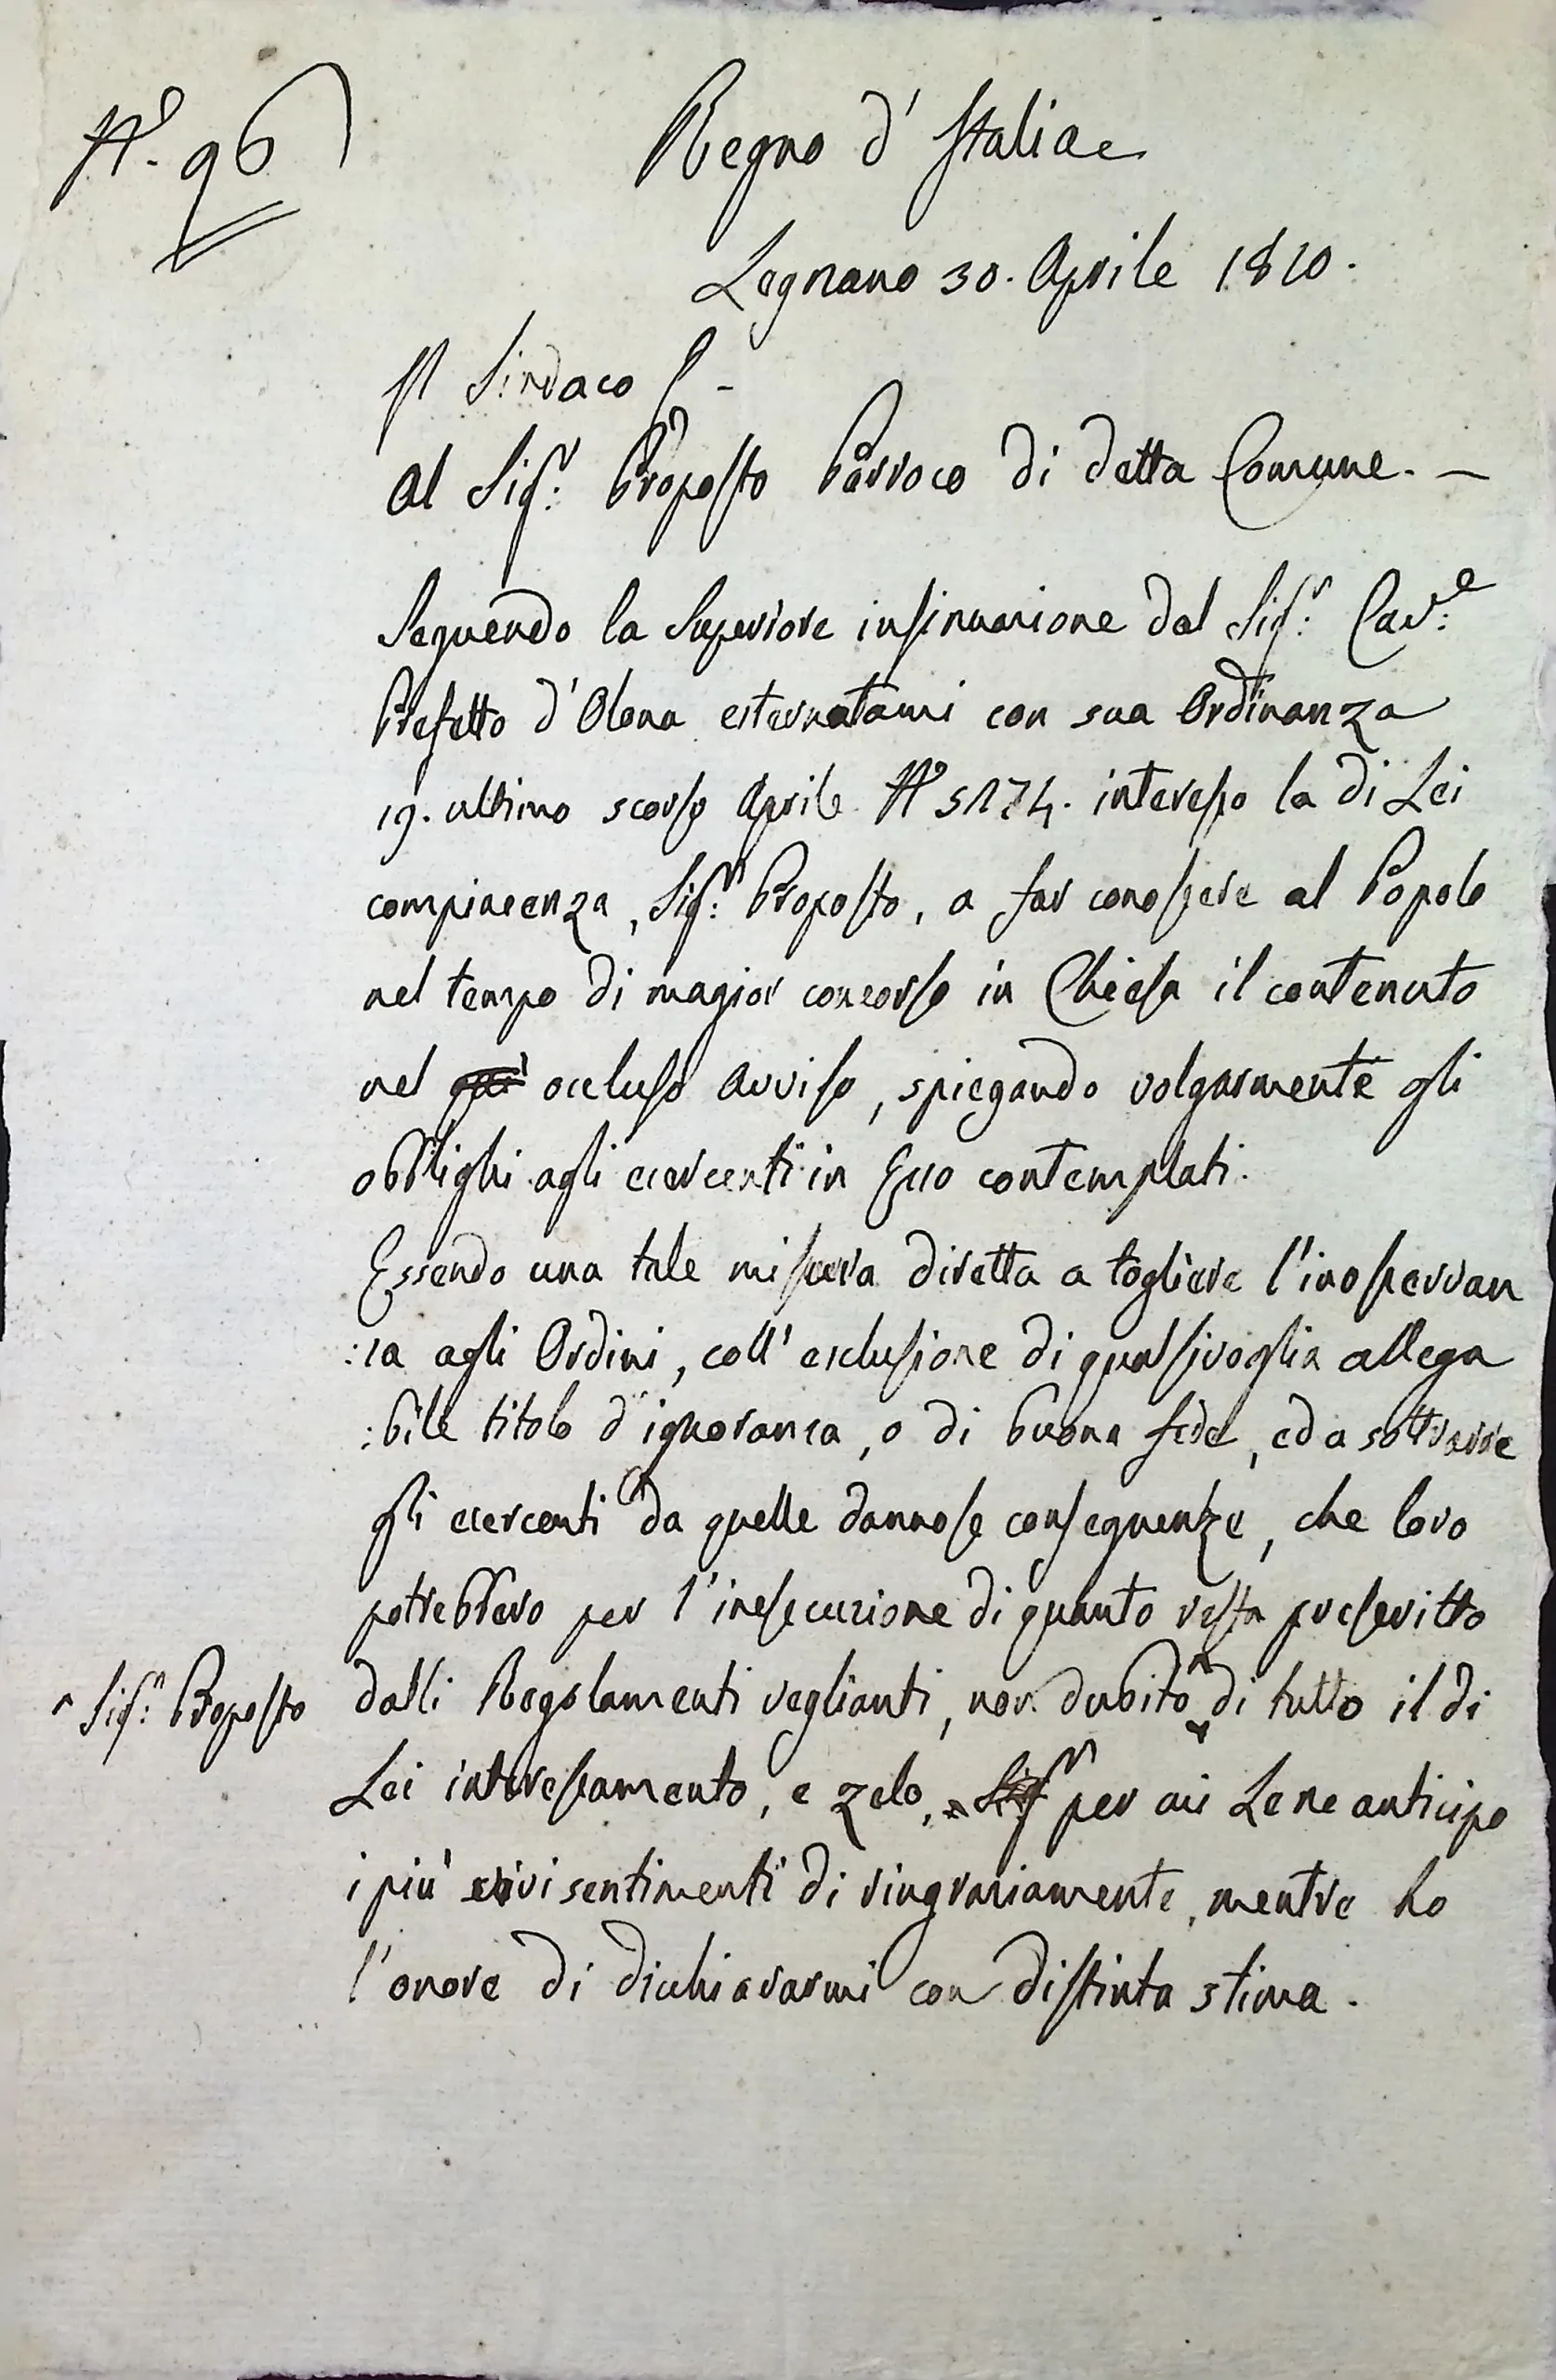 N.o 96
Regno d'Italia
Legnano 30. Aprile 1810.
Il Sindaco
Al Sig.r Proposto Parroco di detta Comune. —
Seguendo la Superiore insinuazione dal Sig.r Cav.e
Prefetto d'Olona esternatami con sua Ordinanza
19. ultimo scorso Aprile N.o 5174. interesso la di Lei
compiacenza, Sig.r Proposto, a far conoscere al Popolo
nel tempo di magior concorso in Chiesa il contenuto
nel occluso Avviso, spiegando volgarmente gli
obblighi agli esercenti in Esso contemplati.
Essendo una tale misura diretta a togliere l'inosservan
:za agli Ordini, coll'esclusione di qualsivoglia allega
:bile titolo d'ignoranza, o di buona fede, ed a sottrarre
gli esercenti da quelle dannose conseguenze, che loro
potrebbero per l'inesecuzione di quanto resta prescritto
dalli Regolamenti veglianti, non dubito di tutto il di
^ Sig.r Proposto
Lei interessamento, e zelo, per cui Le ne anticipo
i più vivi sentimenti di ringraziamente, mentre ho
l'onore di dichiararmi con distinta stima.